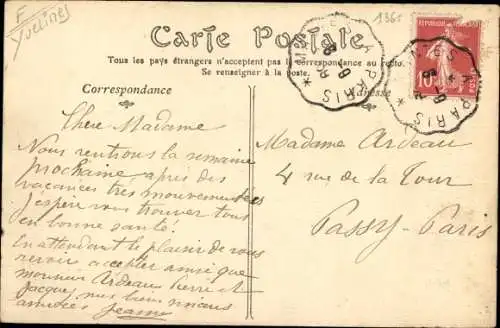 F
Yvelines
1361
Carte Postale
Tous les pays étrangers n'acceptent pas la correspondance au recto.
Se renseigner à la poste.
Correspondance
Adresse
A PARIS
A PARIS
10
Chere Madame
Nous rentrons la semaine
prochaine apres des
vacances tres mouvementées
j'espère vous trouver tous
en bonne santé.
En attendant le plaisir de vous
revoir accepter ainsi que
monsieur Ardeau Pierre et
Jacques nos bien
amitiés Jeanne
Madame Ardeau
4 rue de la Tour
Passy-Paris